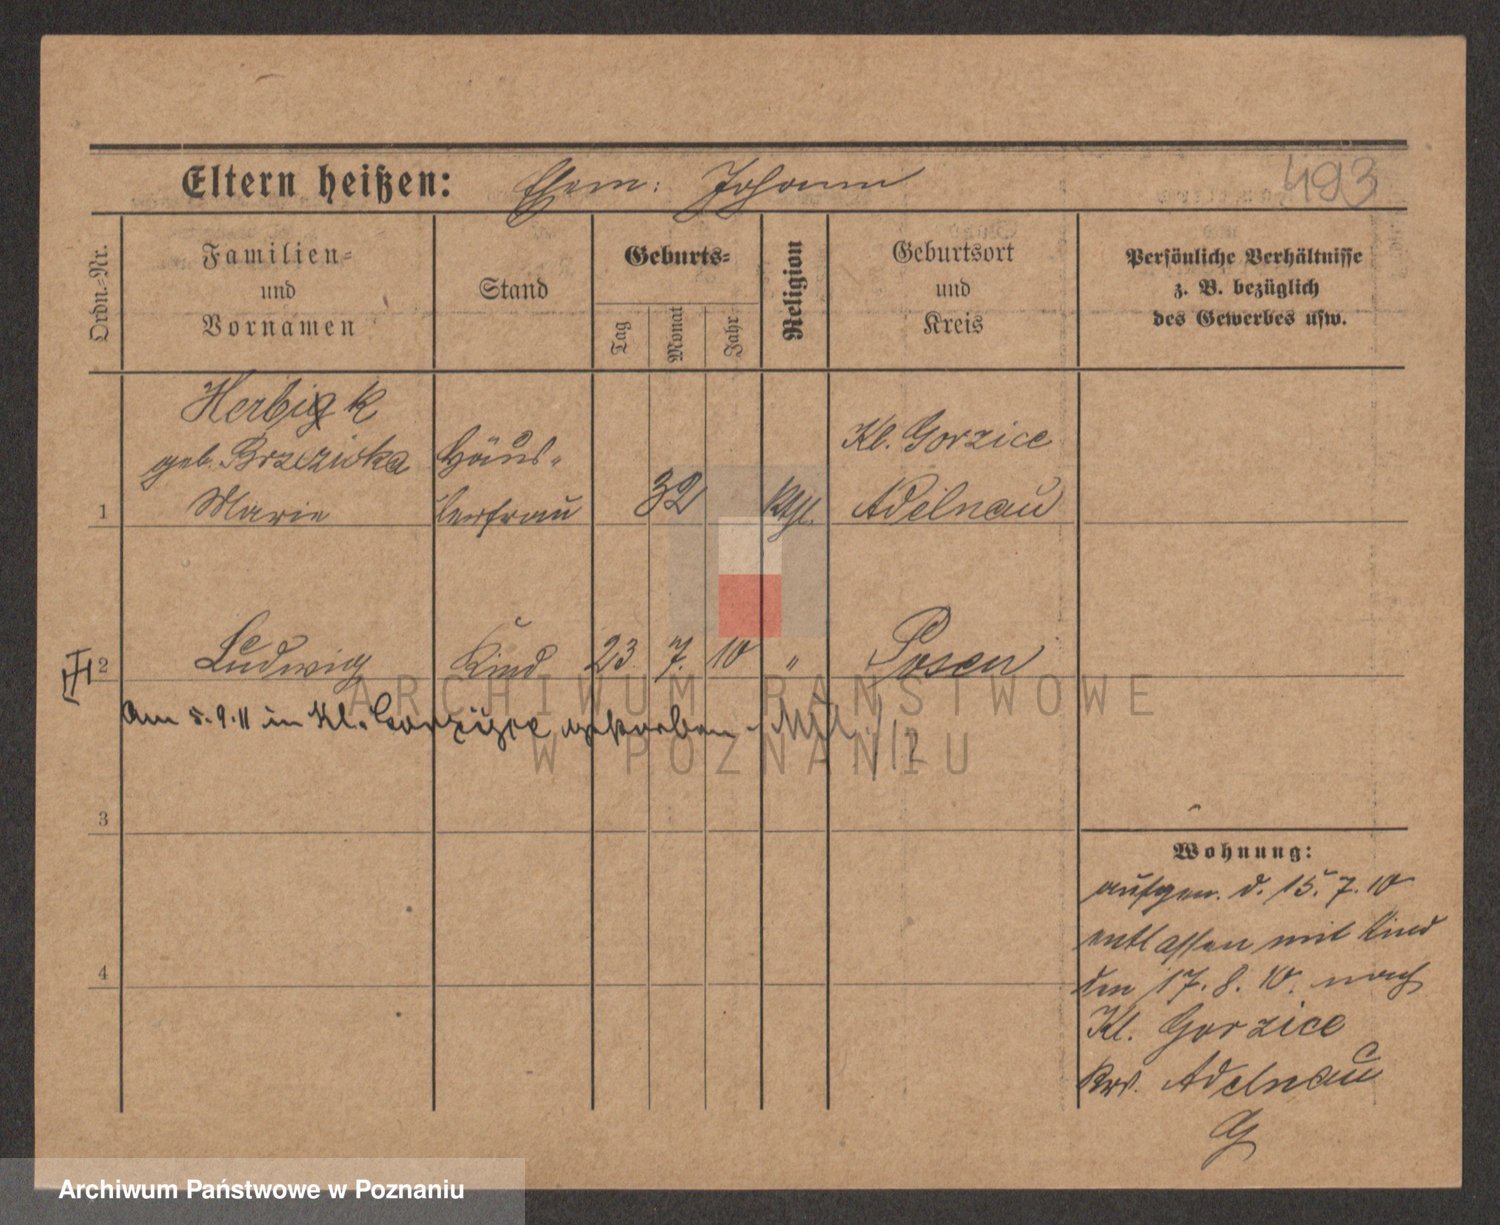 Eltern heißen: Ehem: Johann
493
Ordn.-Nr.
Familien-
und
Vornamen
Stand
Geburts-
Tag
Monat
Jahr
Religion
Geburtsort
und
Kreis
Persönliche Verhältnisse
z. B. bezüglich
des Gewerbes usw.
Herbigk
geb. Brzezicka
1 Marie
Häus-
lerfrau
32
Kth.
Kl. Gorzice
Adelnau
2 Ludwig Kind 23. 7. 10 " Posen
Am 5.9.11 in Kl. Gorzice gestorben
3
4
Wohnung:
aufgen. d. 15.7.10
entlassen mit Kind
den 17.8.10. nach
Kl. Gorzice
Krs. Adelnau
G
ARCHIWUM PAŃSTWOWE
W POZNANIU
Archiwum Państwowe w Poznaniu